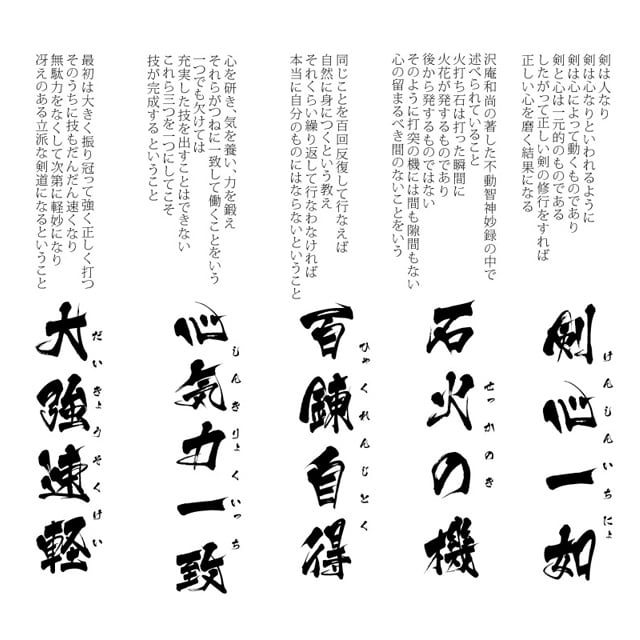 剣は人なり
剣は心なりといわれるように
剣は心によって動くものであり
剣と心は一元的のものである
したがって正しい剣の修行をすれば
正しい心を磨く結果になる
剣心一如
けんしんいちにょ
沢庵和尚の著した不動智神妙録の中で
述べられていること
火打ち石は打った瞬間に
火花が発するものであり
後から発するものではない
そのように打突の機には間も隙間もない
心の留まるべき間のないことをいう
石火の機
せっかのき
同じことを百回反復して行なえば
自然に身につくという教え
それくらい繰り返して行なわなければ
本当に自分のものにはならないということ
百錬自得
ひゃくれんじとく
心を研き、気を養い、力を鍛え
それらがつねに一致して働くことをいう
一つでも欠けては
充実した技を出すことはできない
これら三つを一つにしてこそ
技が完成する ということ
心気力一致
しんきりょくいっち
最初は大きく振り冠って強く正しく打つ
そのうちに技もだんだん速くなり
無駄力をなくして次第に軽妙になり
冴えのある立派な剣道になるということ
大強速軽
だいきょうそくけい